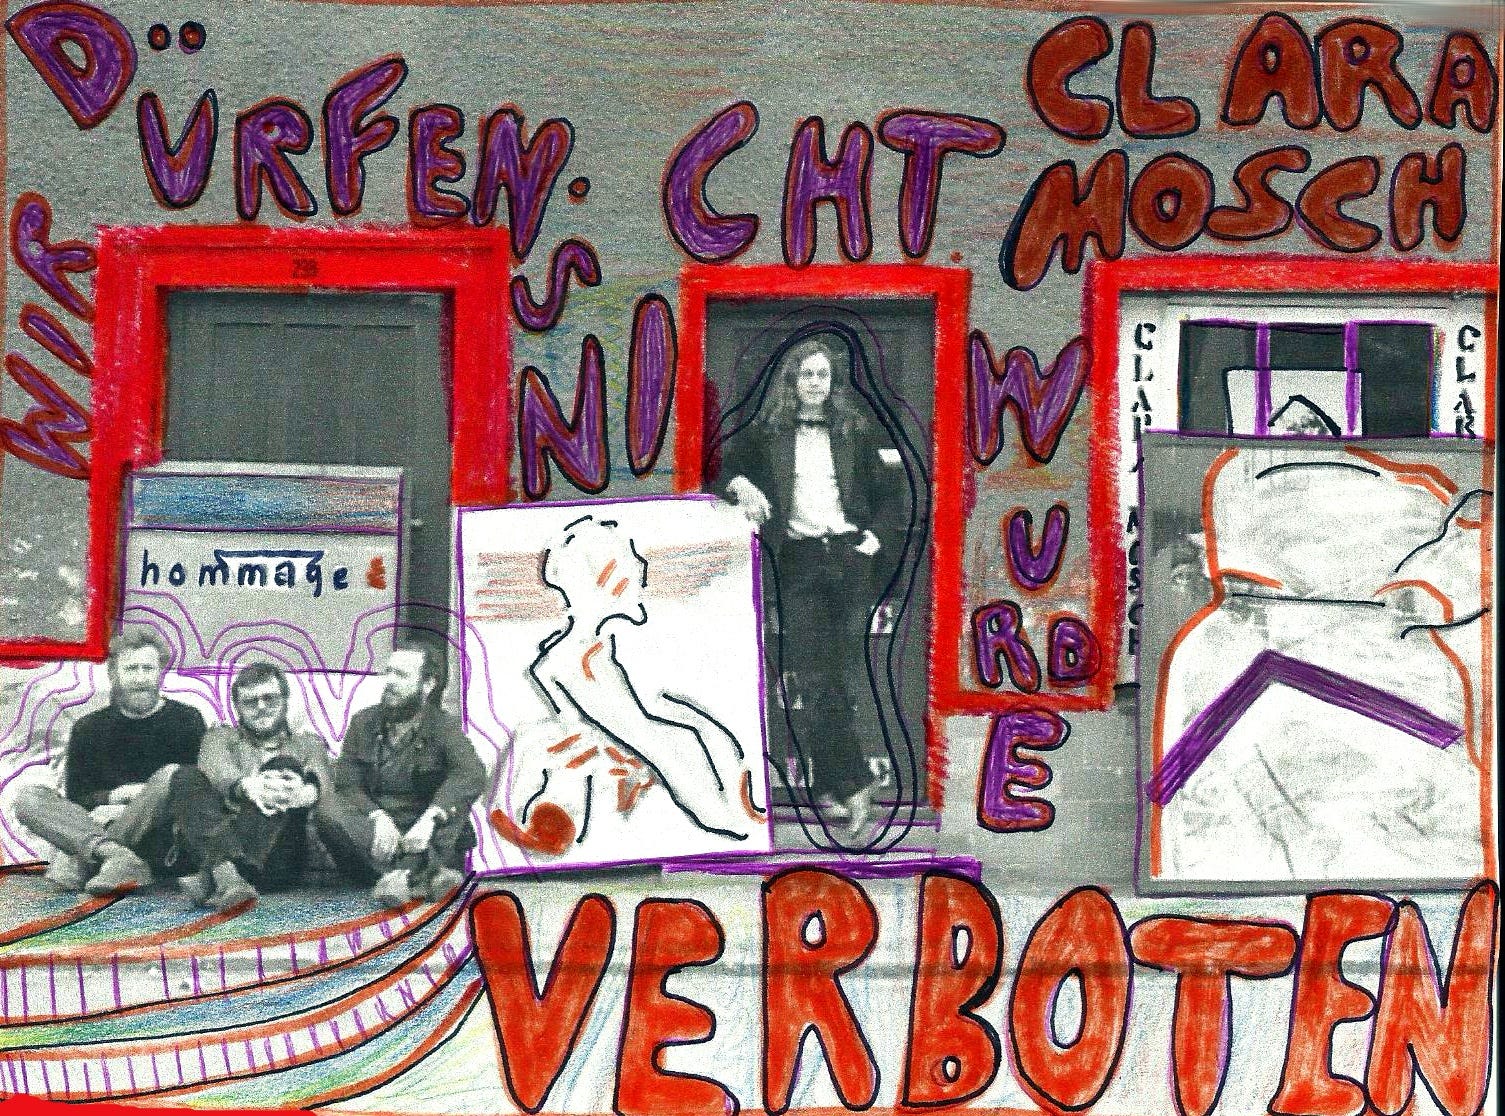 WIR
DÜRFEN.
S
NICHT.
CLARA
MOSCH
WURDE
VERBOTEN
hommage
CLARA MOSCH
CLAR